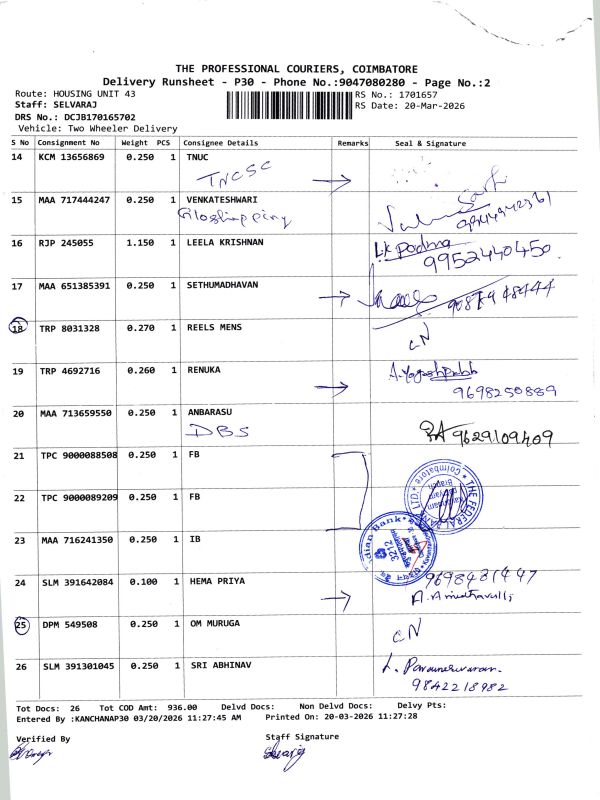 THE PROFESSIONAL COURIERS, COIMBATORE
Delivery Runsheet - P30 - Phone No.:9047080280 - Page No.:2
Route: HOUSING UNIT 43
RS No.: 1701657
Staff: SELVARAJ
RS Date: 20-Mar-2026
DRS No.: DCJB170165702
Vehicle: Two Wheeler Delivery
S No Consignment No Weight PCS Consignee Details Remarks Seal & Signature
14 KCM 13656869 0.250 1 TNUC
TNCSC
15 MAA 717444247 0.250 1 VENKATESHWARI
16 RJP 245055 1.150 1 LEELA KRISHNAN L.K Padma
9952440450
17 MAA 651385391 0.250 1 SETHUMADHAVAN
18 TRP 8031328 0.270 1 REELS MENS
CN
19 TRP 4692716 0.260 1 RENUKA
9698250889
20 MAA 713659550 0.250 1 ANBARASU
DBS 9629109409
21 TPC 9000088508 0.250 1 FB
THE FEDERAL BANK LTD.
Coimbatore
22 TPC 9000089209 0.250 1 FB
23 MAA 716241350 0.250 1 IB
Indian Bank
24 SLM 391642084 0.100 1 HEMA PRIYA 9698481447
25 DPM 549508 0.250 1 OM MURUGA CN
26 SLM 391301045 0.250 1 SRI ABHINAV
9842218982
Tot Docs: 26 Tot COD Amt: 936.00 Delvd Docs: Non Delvd Docs: Delvy Pts:
Entered By :KANCHANAP30 03/20/2026 11:27:45 AM Printed On: 20-03-2026 11:27:28
Verified By
Staff Signature